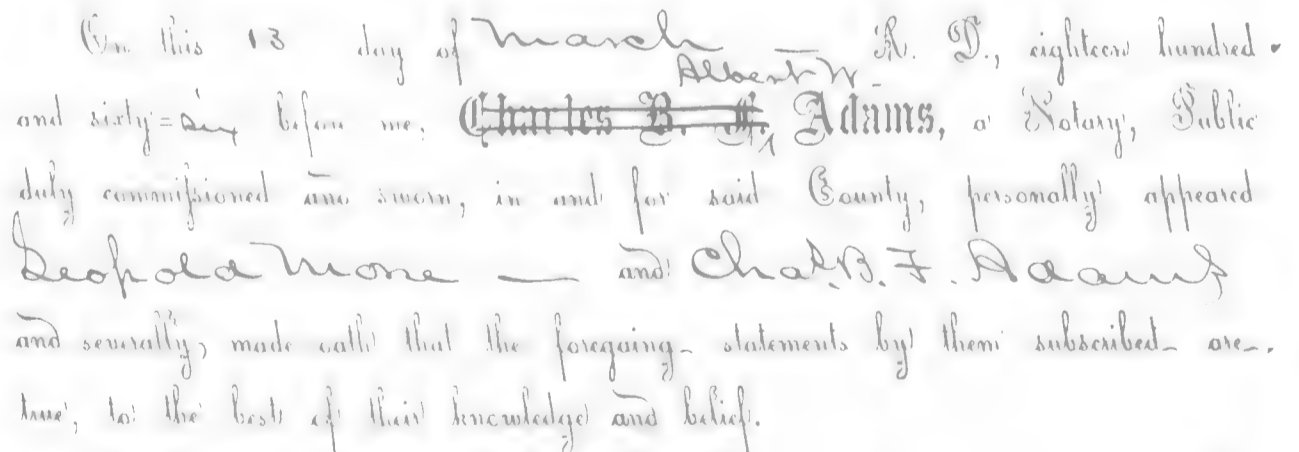 On this 13 day of March — A. D., eighteen hundred
Albert W.
and sixty=six before me, Charles B. F. Adams, a Notary, Public
duly commissioned and sworn, in and for said County, personally appeared
Leopold Mone — and Chas. B. F. Adams
and severally, made oath that the foregoing statements by them subscribed are
true, to the best of their knowledge and belief.